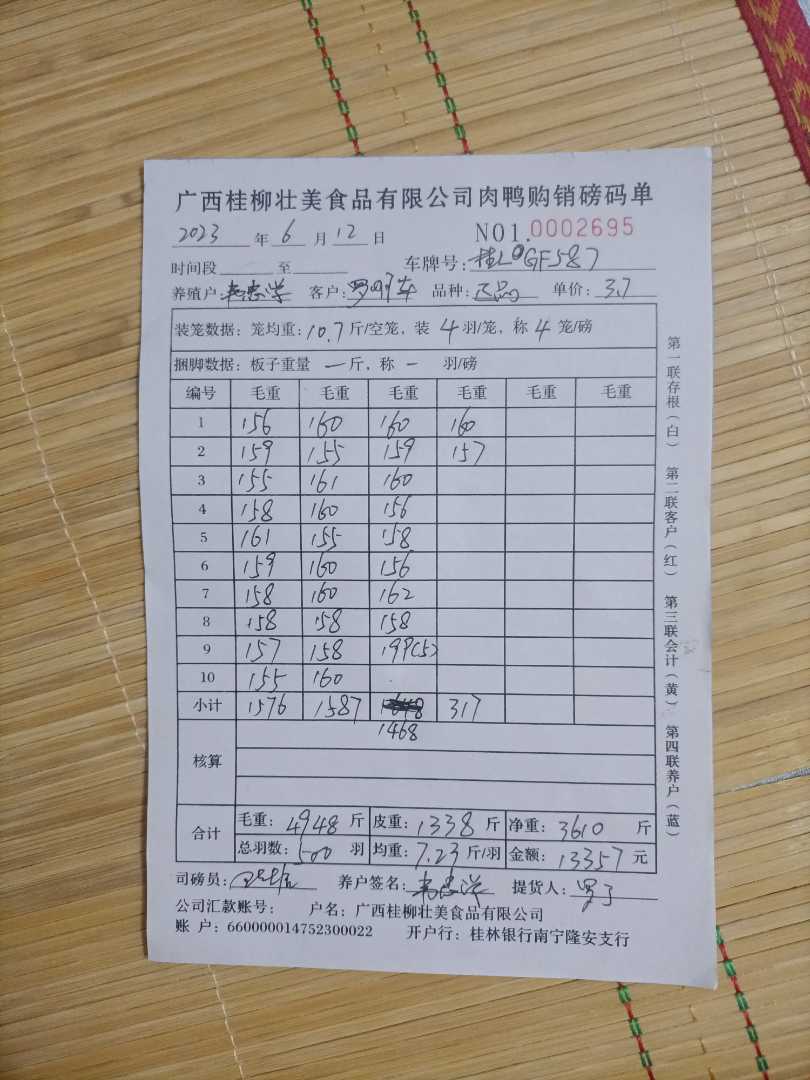 广西桂柳壮美食品有限公司肉鸭购销磅码单
2023 年 6 月 12 日 NO1.0002695
时间段 至 车牌号: 桂L GF587
养殖户: 客户: 品种: 正品 单价: 3.7
装笼数据: 笼均重: 10.7 斤/空笼, 装 4 羽/笼, 称 4 笼/磅
捆脚数据: 板子重量 一 斤, 称 一 羽/磅
编号 毛重 毛重 毛重 毛重 毛重 毛重
1 156 160 160 160
2 159 155 159 157
3 155 161 160
4 158 160 156
5 161 155 158
6 159 160 156
7 158 160 162
8 158 158 158
9 157 158 199(5)
10 155 160
小计 1576 1587 317
1468
核算
合计 毛重: 4948 斤 皮重: 1338 斤 净重: 3610 斤
总羽数: 500 羽 均重: 7.23 斤/羽 金额: 13357 元
司磅员: 养户签名: 提货人:
公司汇款账号: 户名: 广西桂柳壮美食品有限公司
账 户: 660000014752300022 开户行: 桂林银行南宁隆安支行
第一联存根(白) 第二联客户(红) 第三联会计(黄) 第四联养户(蓝)